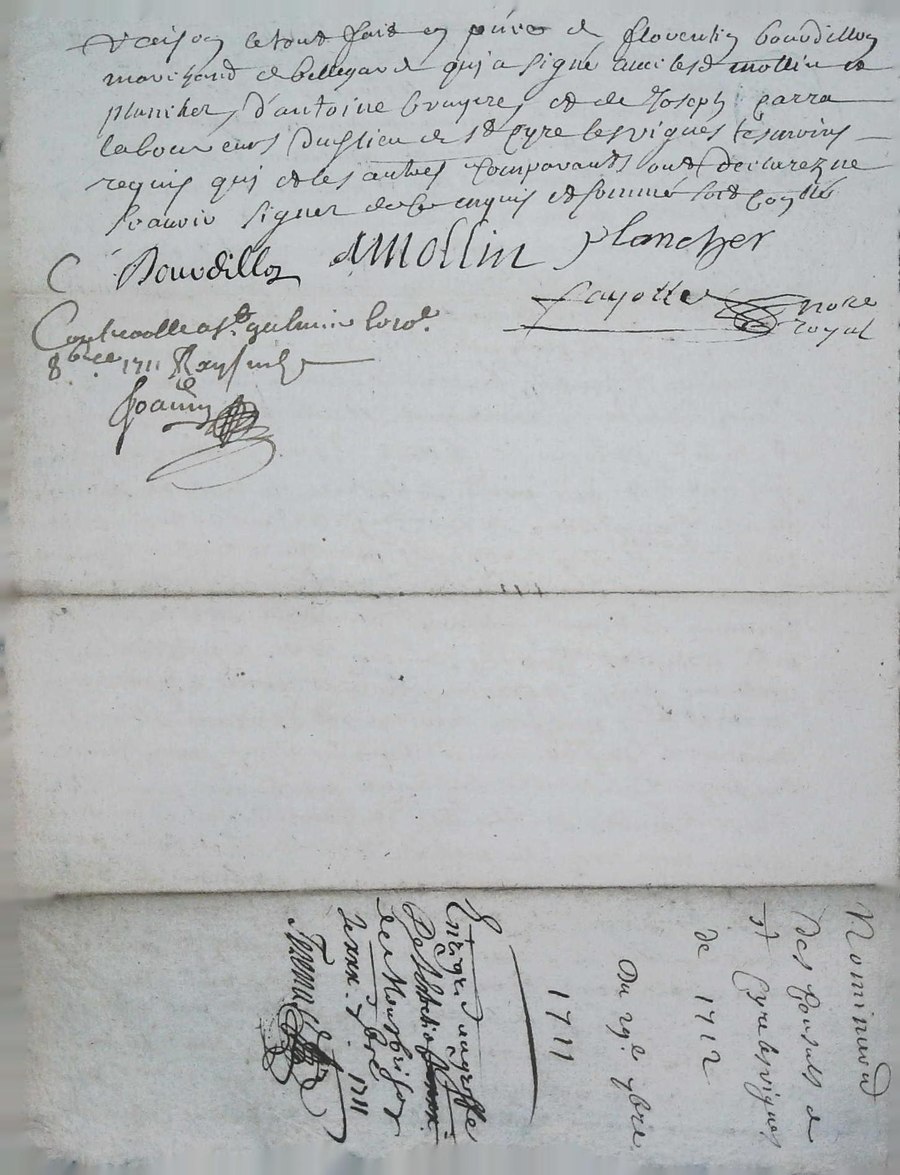 raison le tout fait en pñce de floventin bourdillon
marchand de bellegarde qui a signé avec lesd mollin et
plancher, d'antoine bruyere, et de Joseph parra
laboureurs dud lieu de st Cyre les vignes tesmoins
requis qui et les autres comparants ont declarez ne
scavoir signer de ce enquis et sommé soit conllé
Bourdillon AMollin plancher
fayolle nore
royal
Controolle a st galmier le
8bre 1711 Reçu
Nominaon
des Consuls de
st Cyre les vignes
de 1712
Du 29e 7bre
1711
Enregré au greffe
De
de Montbrison
le xxx. 7bre 1711